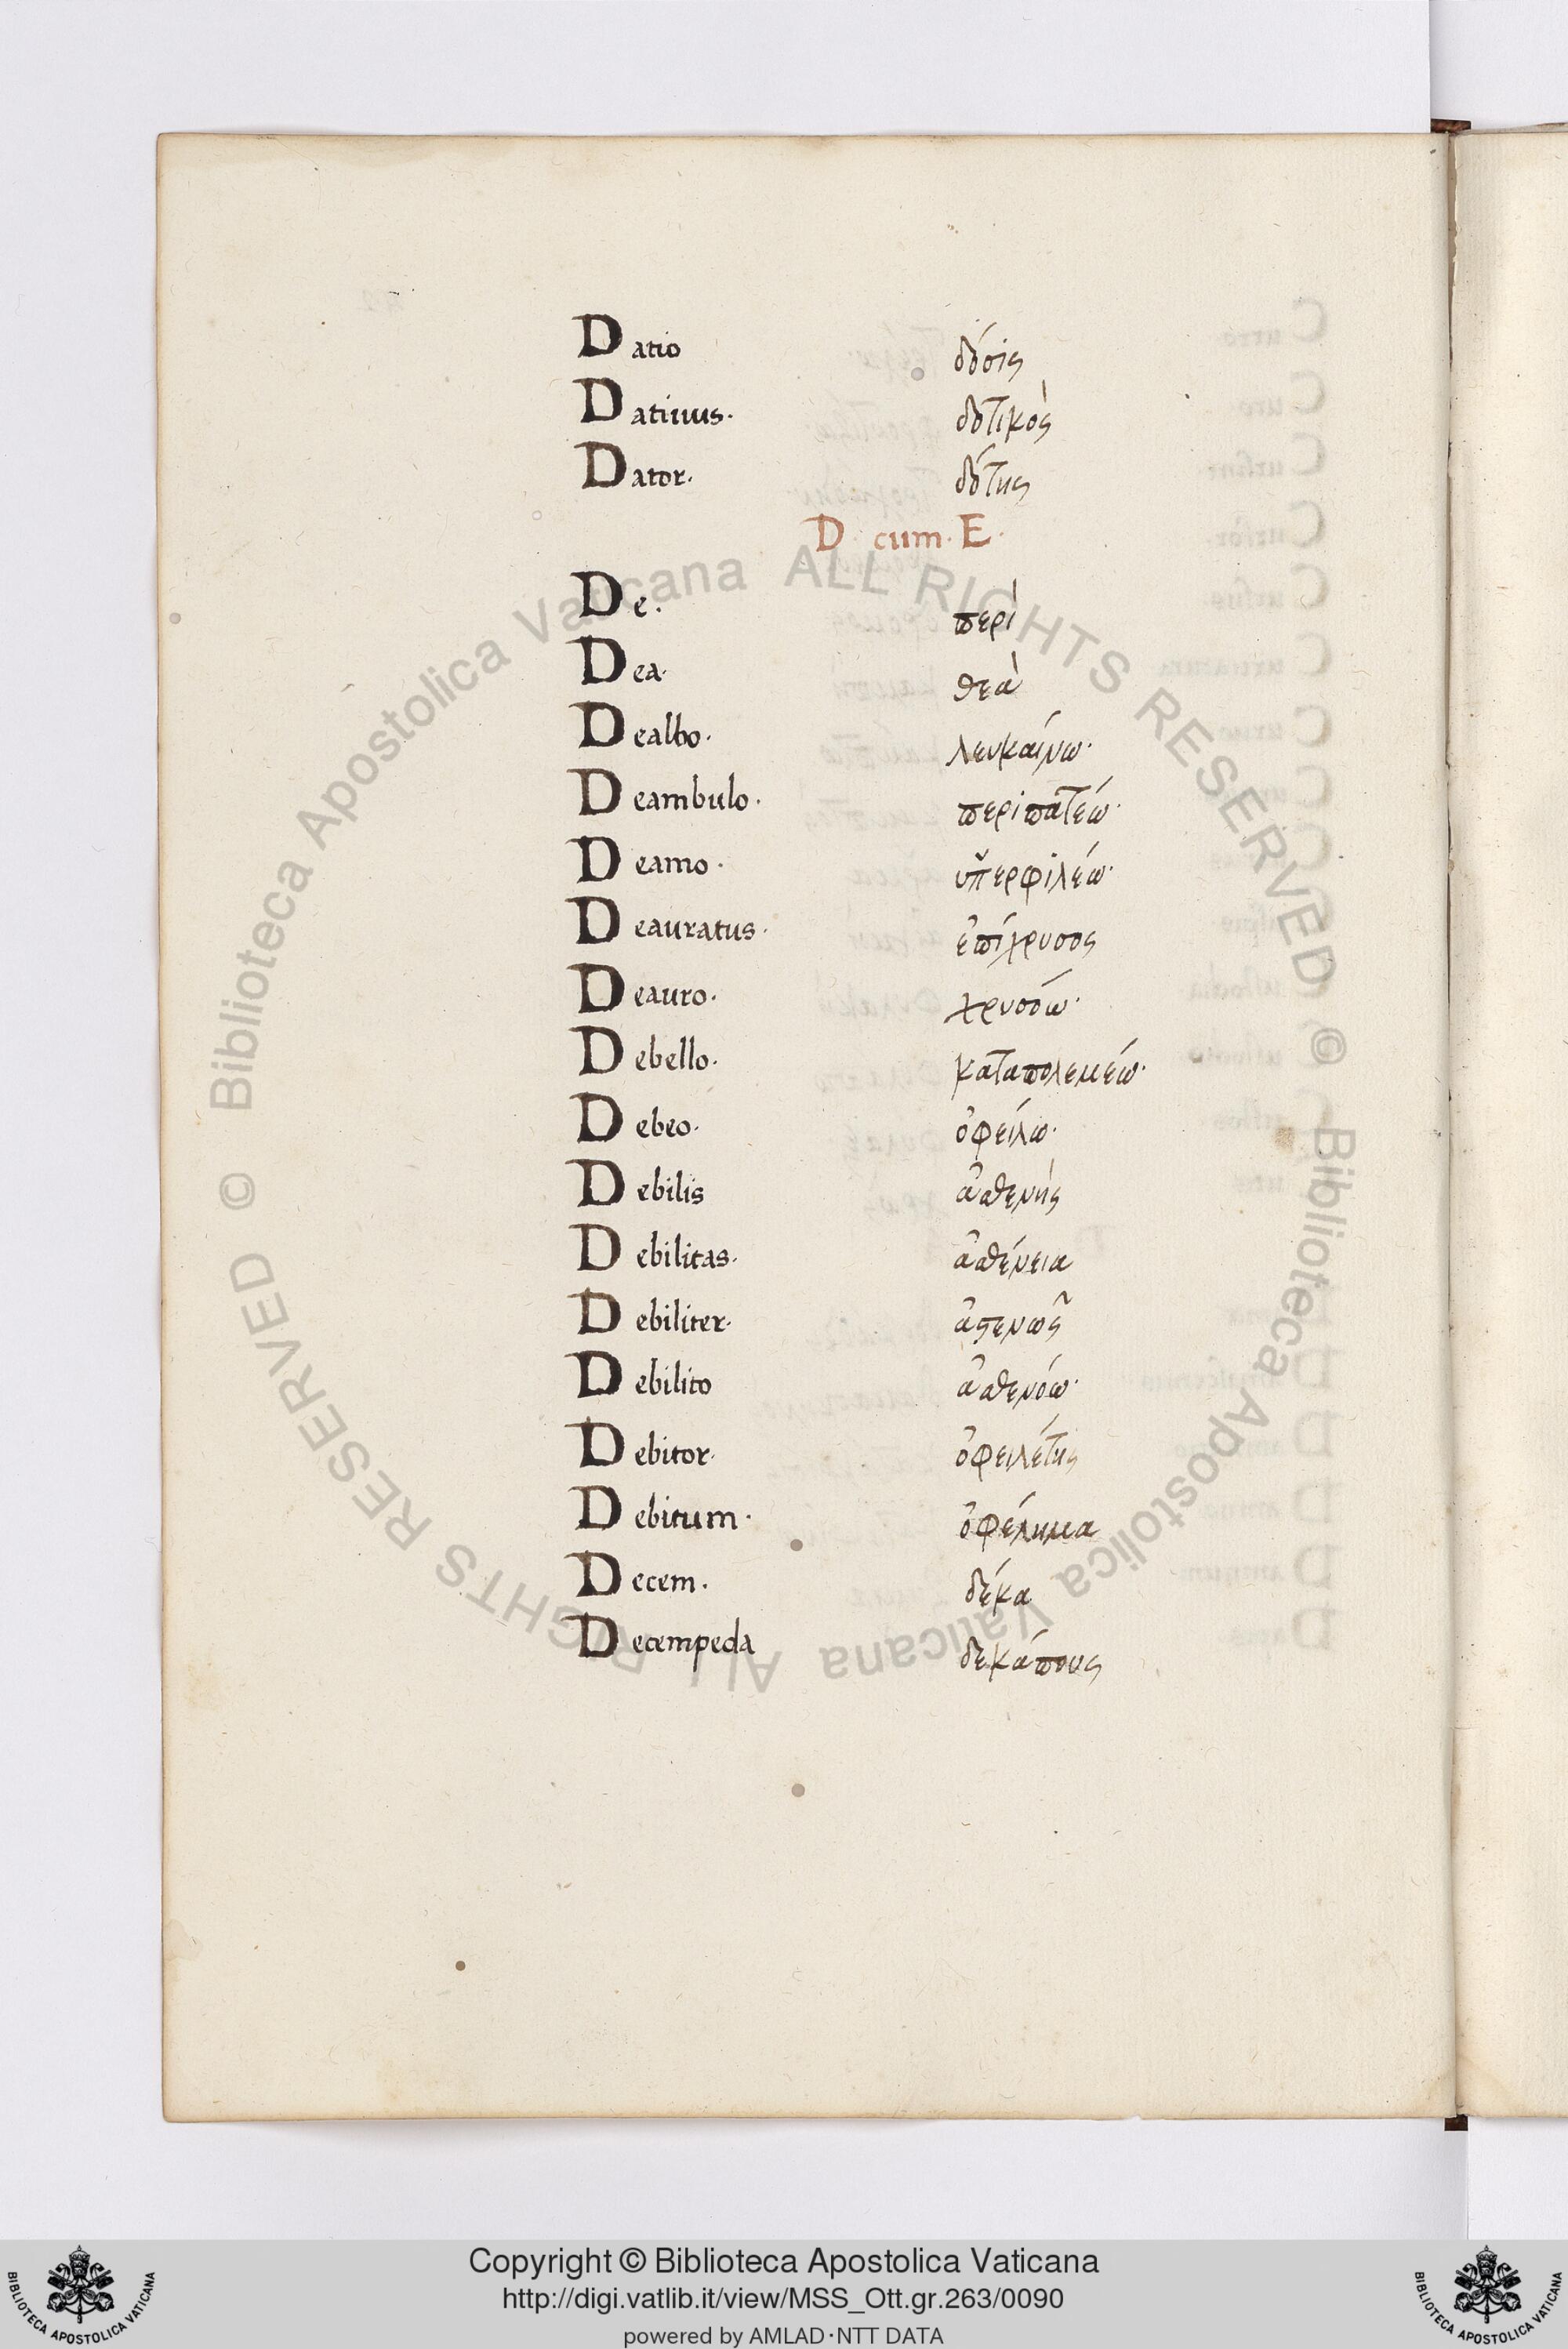 Datio δόσις
Datiuus· δοτικὸς
Dator· δότης
D cum· E·
De· περὶ
Dea· θεὰ
Dealbo· λευκαίνω·
Deambulo· περιπατέω·
Deamo· ὑπερφιλέω·
Deauratus· ἐπίχρυσος
Deauro· χρυσόω·
Debello· καταπολεμέω·
Debeo· ὀφείλω·
Debilis ἀσθενὴς
Debilitas· ἀσθένεια
Debiliter· ἀστενῶς
Debilito ἀσθενόω·
Debitor· ὀφειλέτης
Debitum· ὀφέλημα
Decem· δέκα
Decempeda δεκάπους
© Biblioteca Apostolica Vaticana ALL RIGHTS RESERVED © Biblioteca Apostolica Vaticana ALL RIGHTS RESERVED
Copyright © Biblioteca Apostolica Vaticana
http://digi.vatlib.it/view/MSS_Ott.gr.263/0090
powered by AMLAD·NTT DATA
BIBLIOTECA APOSTOLICA VATICANA
BIBLIOTECA APOSTOLICA VATICANA